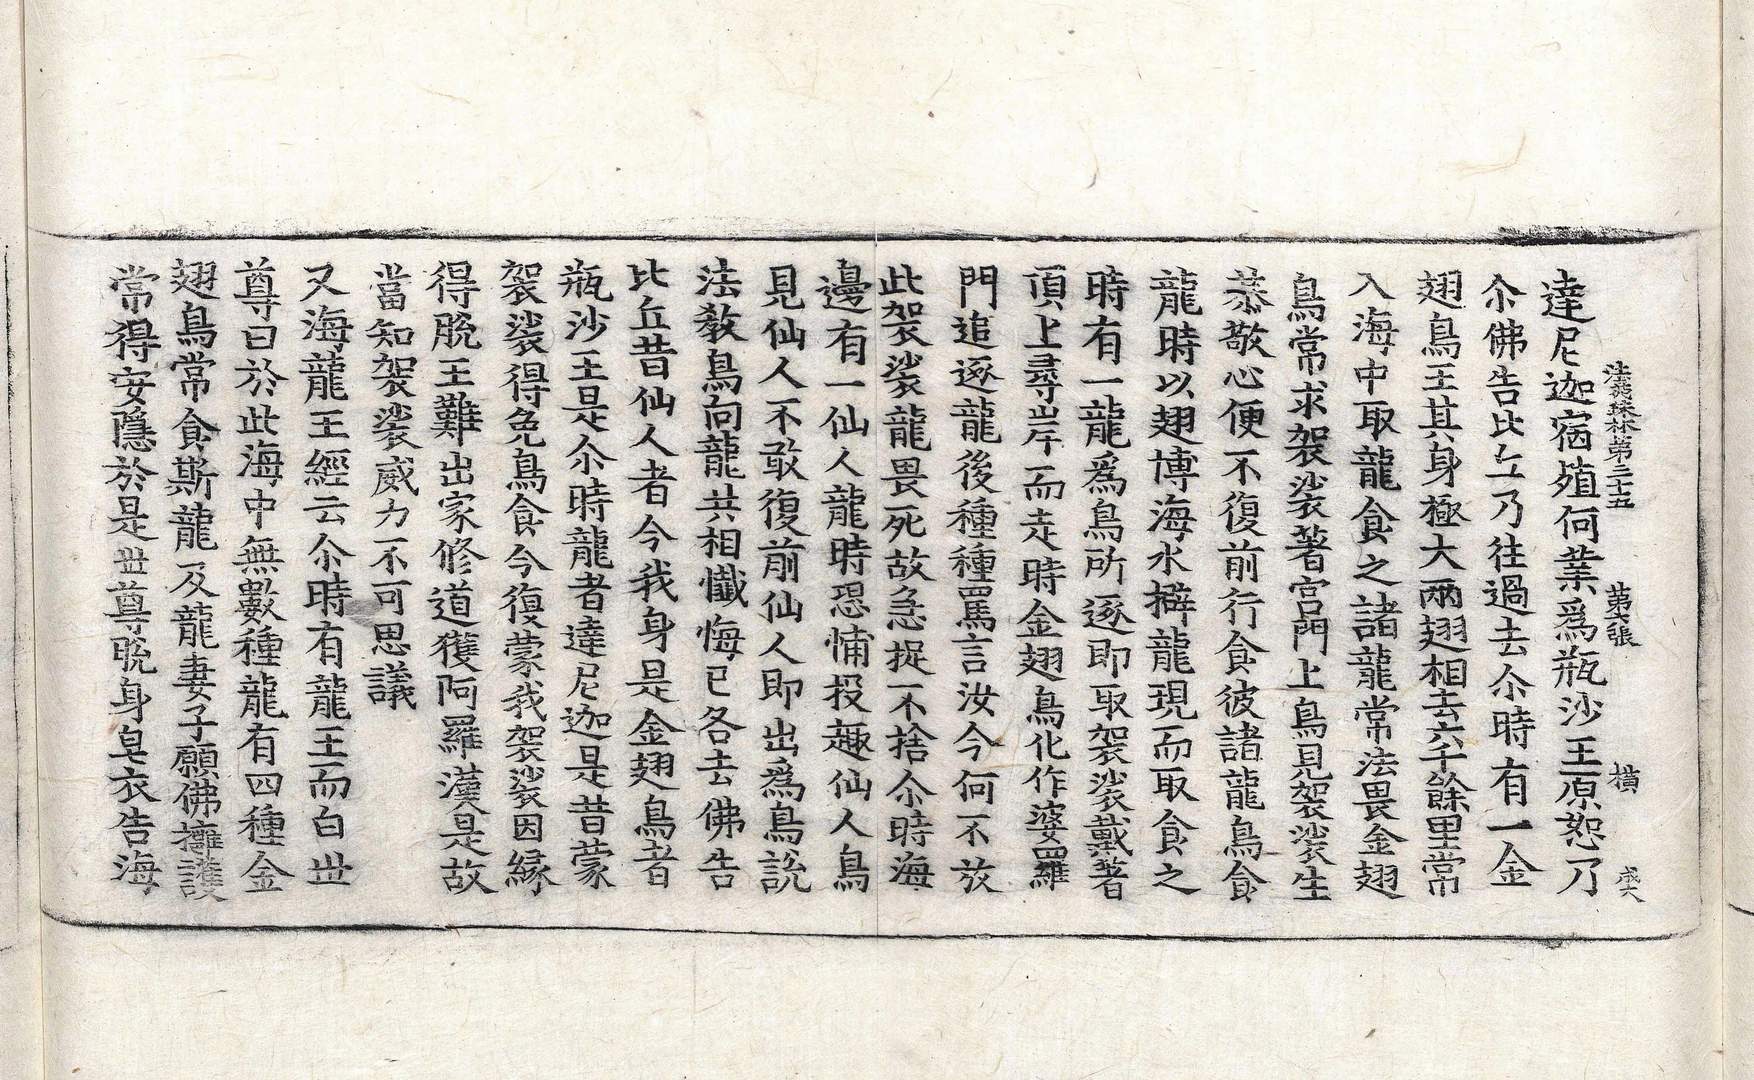 法苑珠林第三十五　第六張　橫　成大
達尼迦宿殖何業爲瓶沙王原恕乃
尒佛告比丘乃往過去尒時有一金
翅鳥王其身極大兩翅相去六千餘里常
入海中取龍食之諸龍常法畏金翅
鳥常求袈裟著宮門上鳥見袈裟生
恭敬心便不復前行食彼諸龍鳥食
龍時以翅博海水擗龍現而取食之
時有一龍爲鳥所逐即取袈裟戴著
頂上尋岸而走時金翅鳥化作婆羅
門追逐龍後種種罵言汝今何不放
此袈裟龍畏死故急捉不捨尒時海
邊有一仙人龍時恐怖投趣仙人鳥
見仙人不敢復前仙人即出爲鳥說
法教鳥向龍共相懺悔已各去佛告
比丘昔仙人者今我身是金翅鳥者
瓶沙王是尒時龍者達尼迦是昔蒙
袈裟得免鳥食今復蒙我袈裟因緣
得脫王難出家修道獲阿羅漢是故
當知袈裟威力不可思議
又海龍王經云尒時有龍王而白世
尊曰於此海中無數種龍有四種金
翅鳥常食斯龍及龍妻子願佛擁護
常得安隱於是世尊脫身皂衣告海